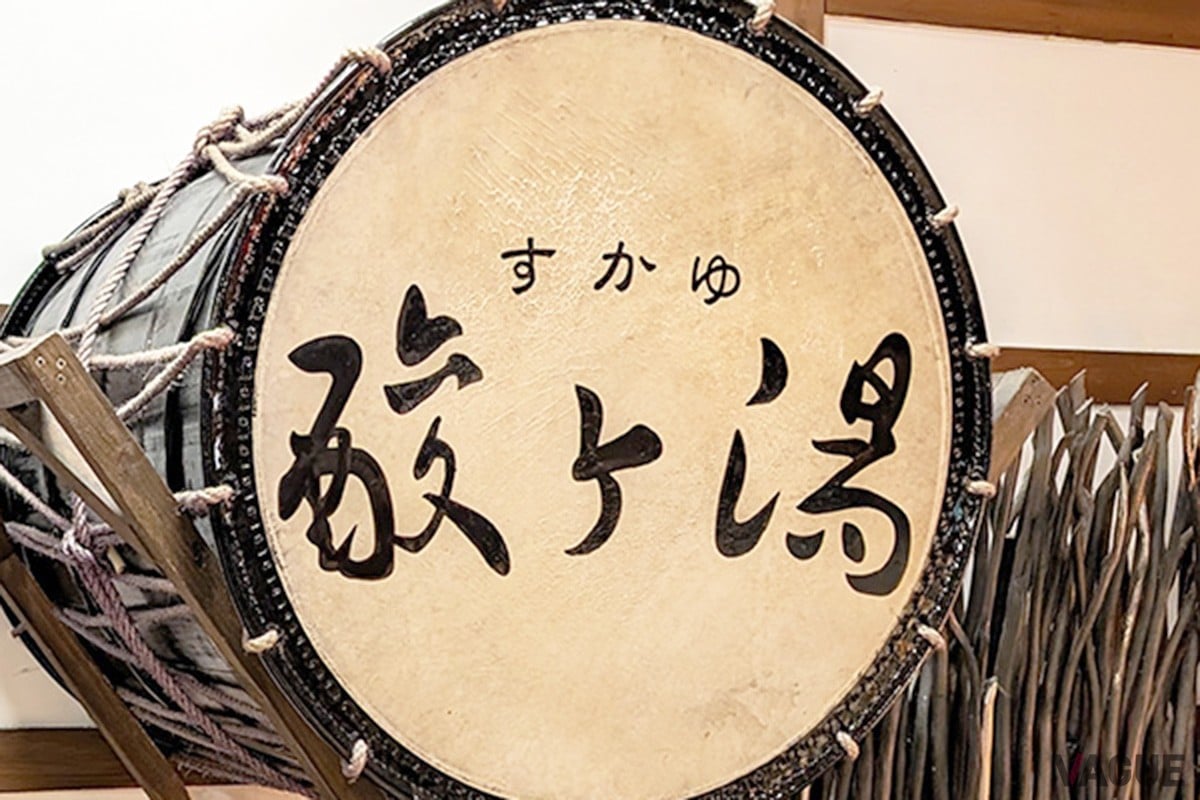 すかゆ
酸ヶ湯
VAGUE